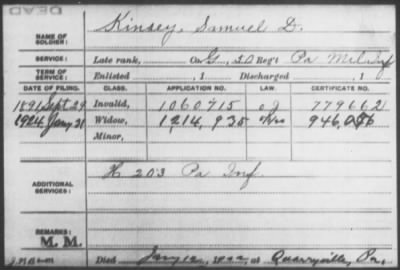 DEAD
NAME OF SOLDIER: Kinsey, Samuel D.
SERVICE: Late rank, Co. G, 50 Reg't Pa Mil Inf
TERM OF SERVICE: Enlisted , 1 Discharged , 1
DATE OF FILING. CLASS. APPLICATION NO. LAW. CERTIFICATE NO.
1891 Sept 29 Invalid, 1060715 779662
1924 Jany 21 Widow, 1214,935 946,056
Minor,
ADDITIONAL SERVICES: H 203 Pa Inf
REMARKS:
M. M.
Died Jany 12, at Quarryville, Pa.